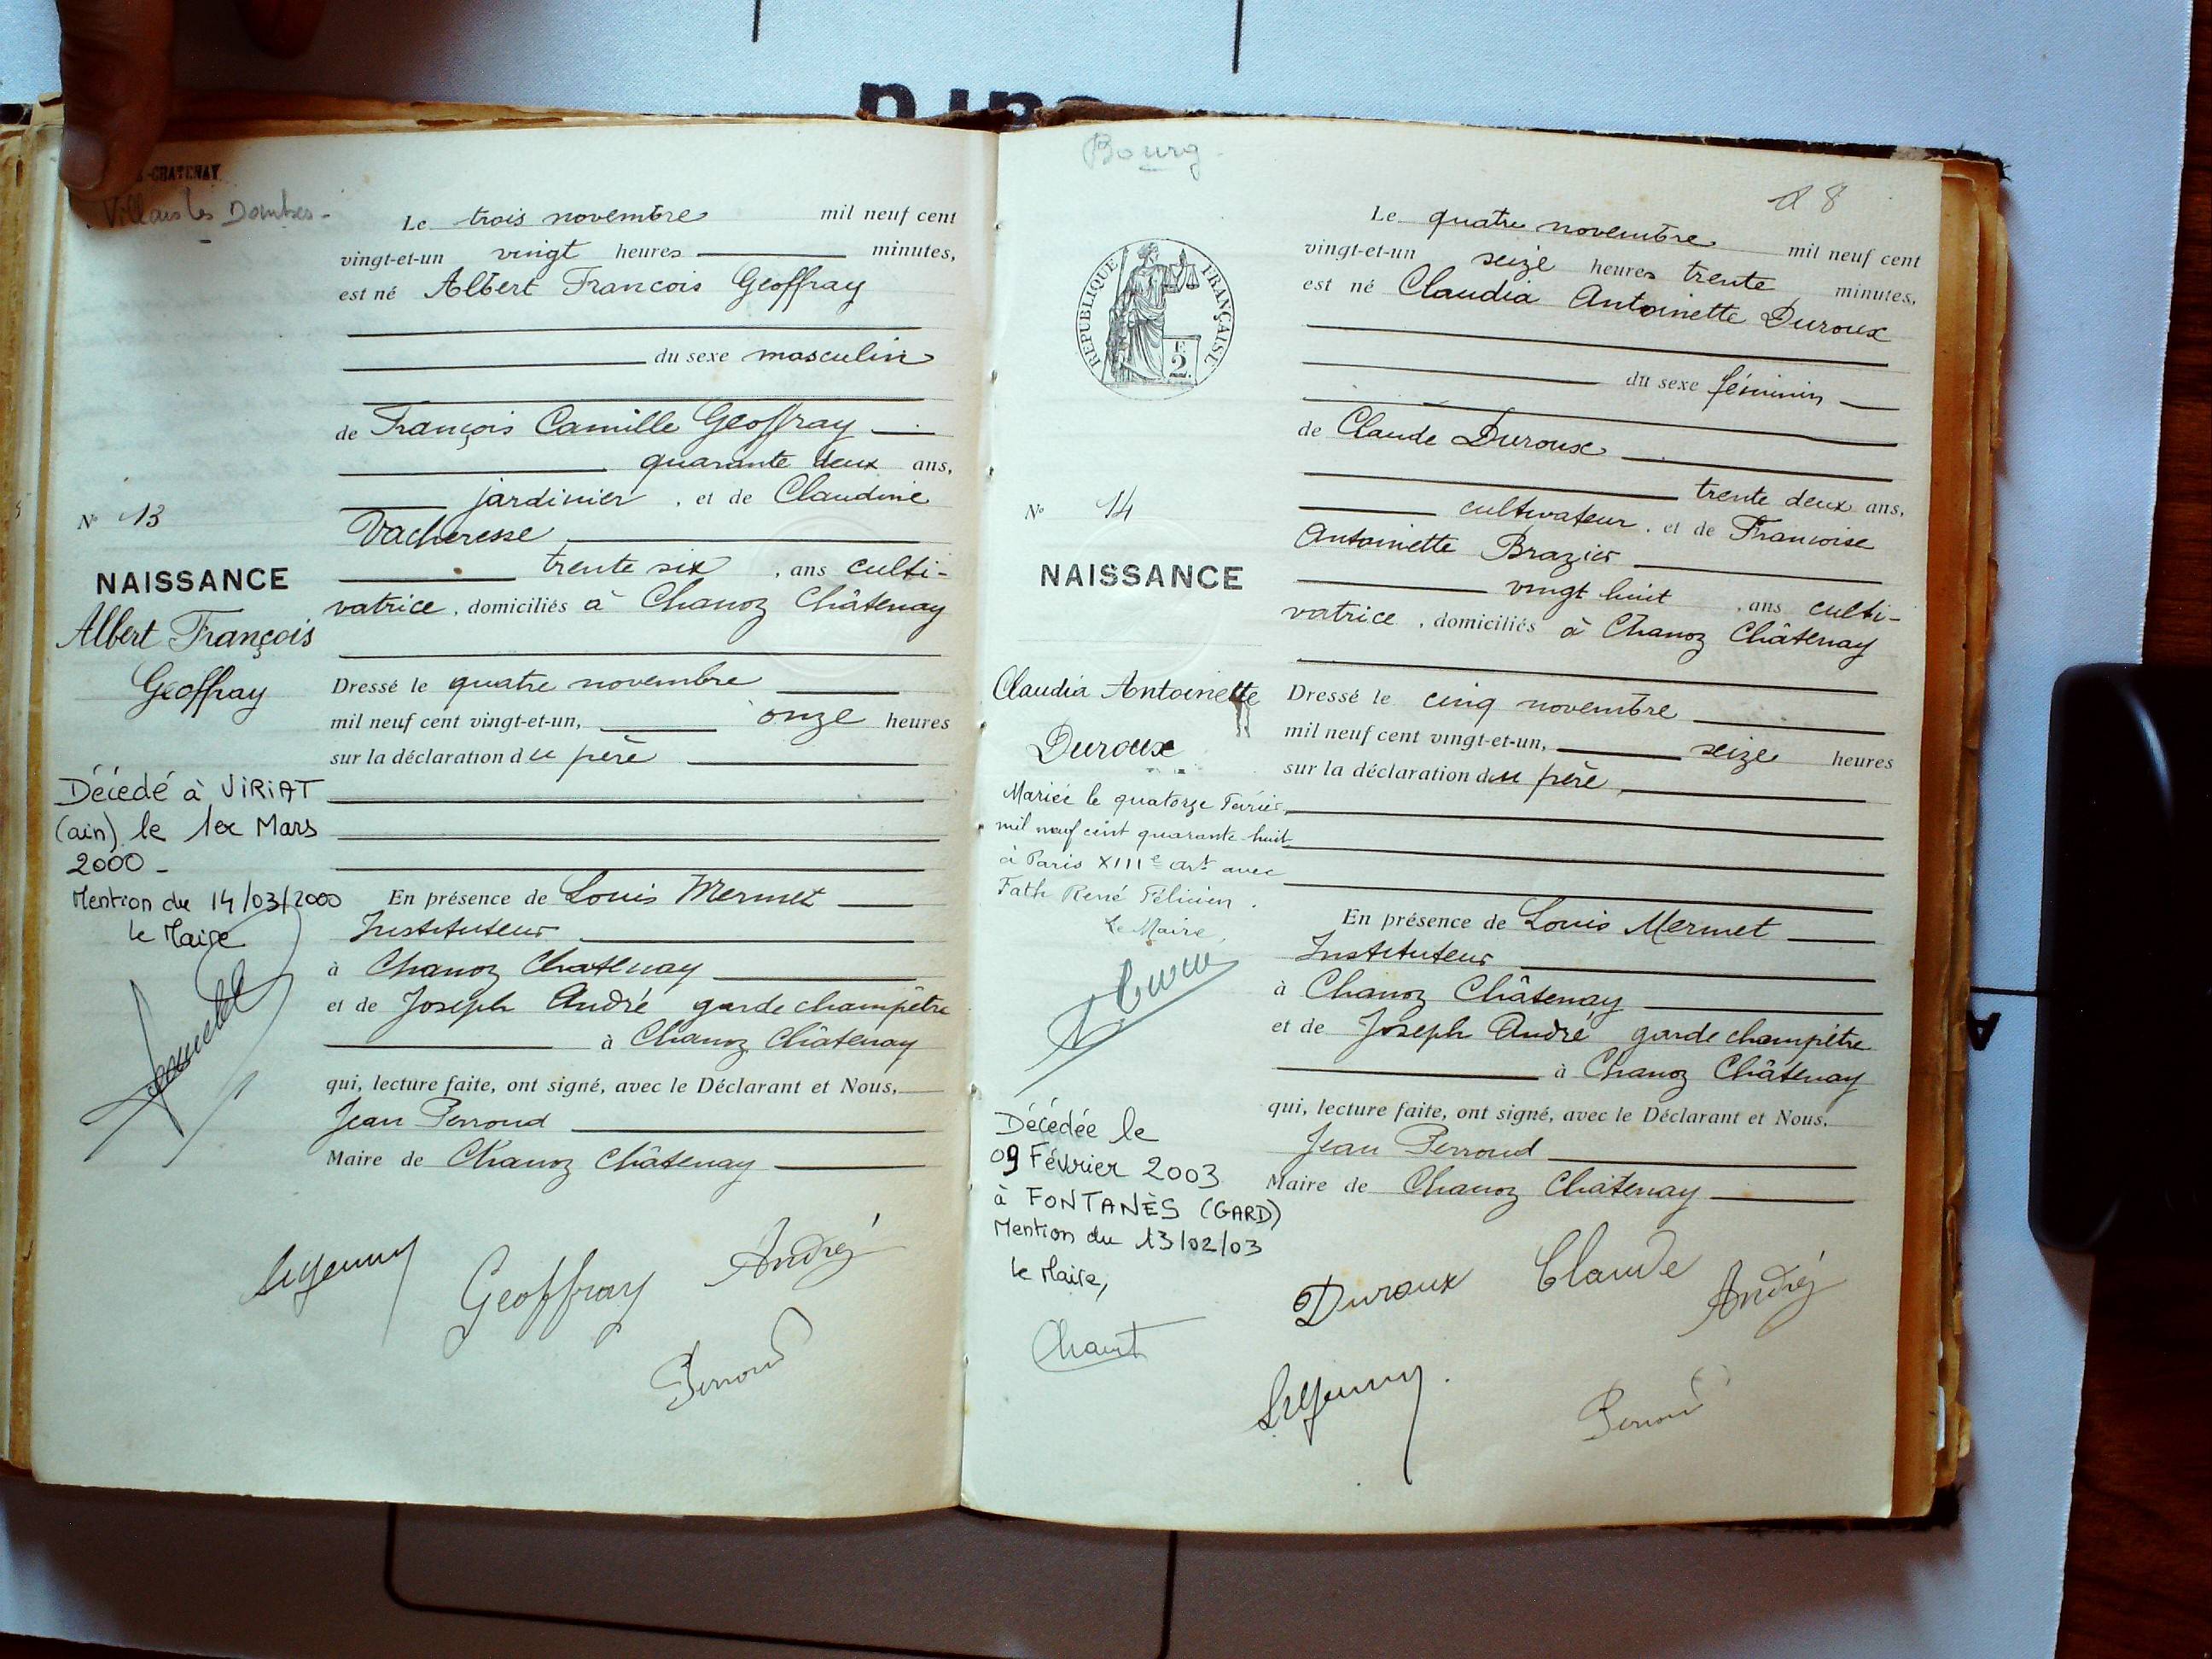 -CHATENAY
Villars les Dombes -
Le trois novembre mil neuf cent
vingt-et-un vingt heures minutes,
est né Albert Francois Geoffray
du sexe masculin
de François Camille Geoffray
quarante deux ans,
jardinier, et de Claudine
Vacheresse
trente six, ans culti-
vatrice, domiciliés à Chanoz Châtenay
Dressé le quatre novembre
mil neuf cent vingt-et-un, onze heures
sur la déclaration du père
En présence de Louis Mermet
Instituteur
à Chanoz Chatenay
et de Joseph André garde champêtre
à Chanoz Châtenay
qui, lecture faite, ont signé, avec le Déclarant et Nous,
Jean Perroud
Maire de Chanoz Châtenay
Geoffray
André
Perroud
N° 13
NAISSANCE
Albert François
Geoffray
Décédé à VIRIAT
(ain) le 1er Mars
2000 -
Mention du 14/03/2000
le Maire
Bourg
18
RÉPUBLIQUE FRANÇAISE
2
Le quatre novembre mil neuf cent
vingt-et-un seize heures trente minutes,
est né Claudia Antoinette Duroux
du sexe féminin
de Claude Duroux
trente deux ans,
cultivateur, et de Francoise
Antoinette Brazier
vingt huit, ans culti-
vatrice, domiciliés à Chanoz Châtenay
Dressé le cinq novembre
mil neuf cent vingt-et-un, seize heures
sur la déclaration du père,
En présence de Louis Mermet
Instituteur
à Chanoz Châtenay
et de Joseph André garde champêtre
à Chanoz Châtenay
qui, lecture faite, ont signé, avec le Déclarant et Nous,
Jean Perroud
Maire de Chanoz Châtenay
Duroux Claude
André
Perroud
N° 14
NAISSANCE
Claudia Antoinette
Duroux
Mariée le quatorze Février
mil neuf cent quarante-huit
à Paris XIIIe art avec
Fath René Félicien.
Le Maire,
Décédée le
09 Février 2003
à FONTANÈS (GARD)
Mention du 13/02/03
le Maire,